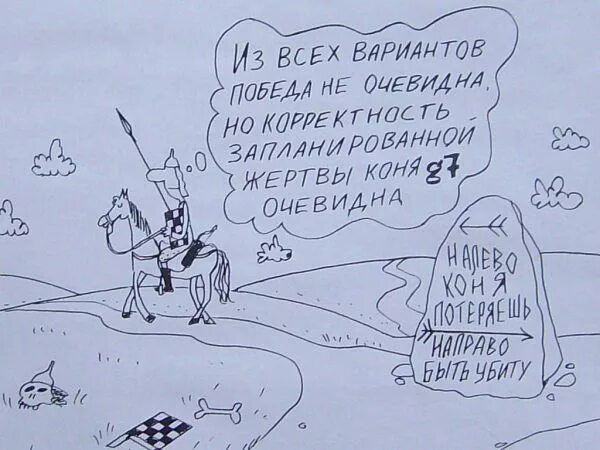 Из всех вариантов
победа не очевидна,
но корректность
запланированной
жертвы коня g7
очевидна
налево
коня
потеряешь
направо
быть убиту